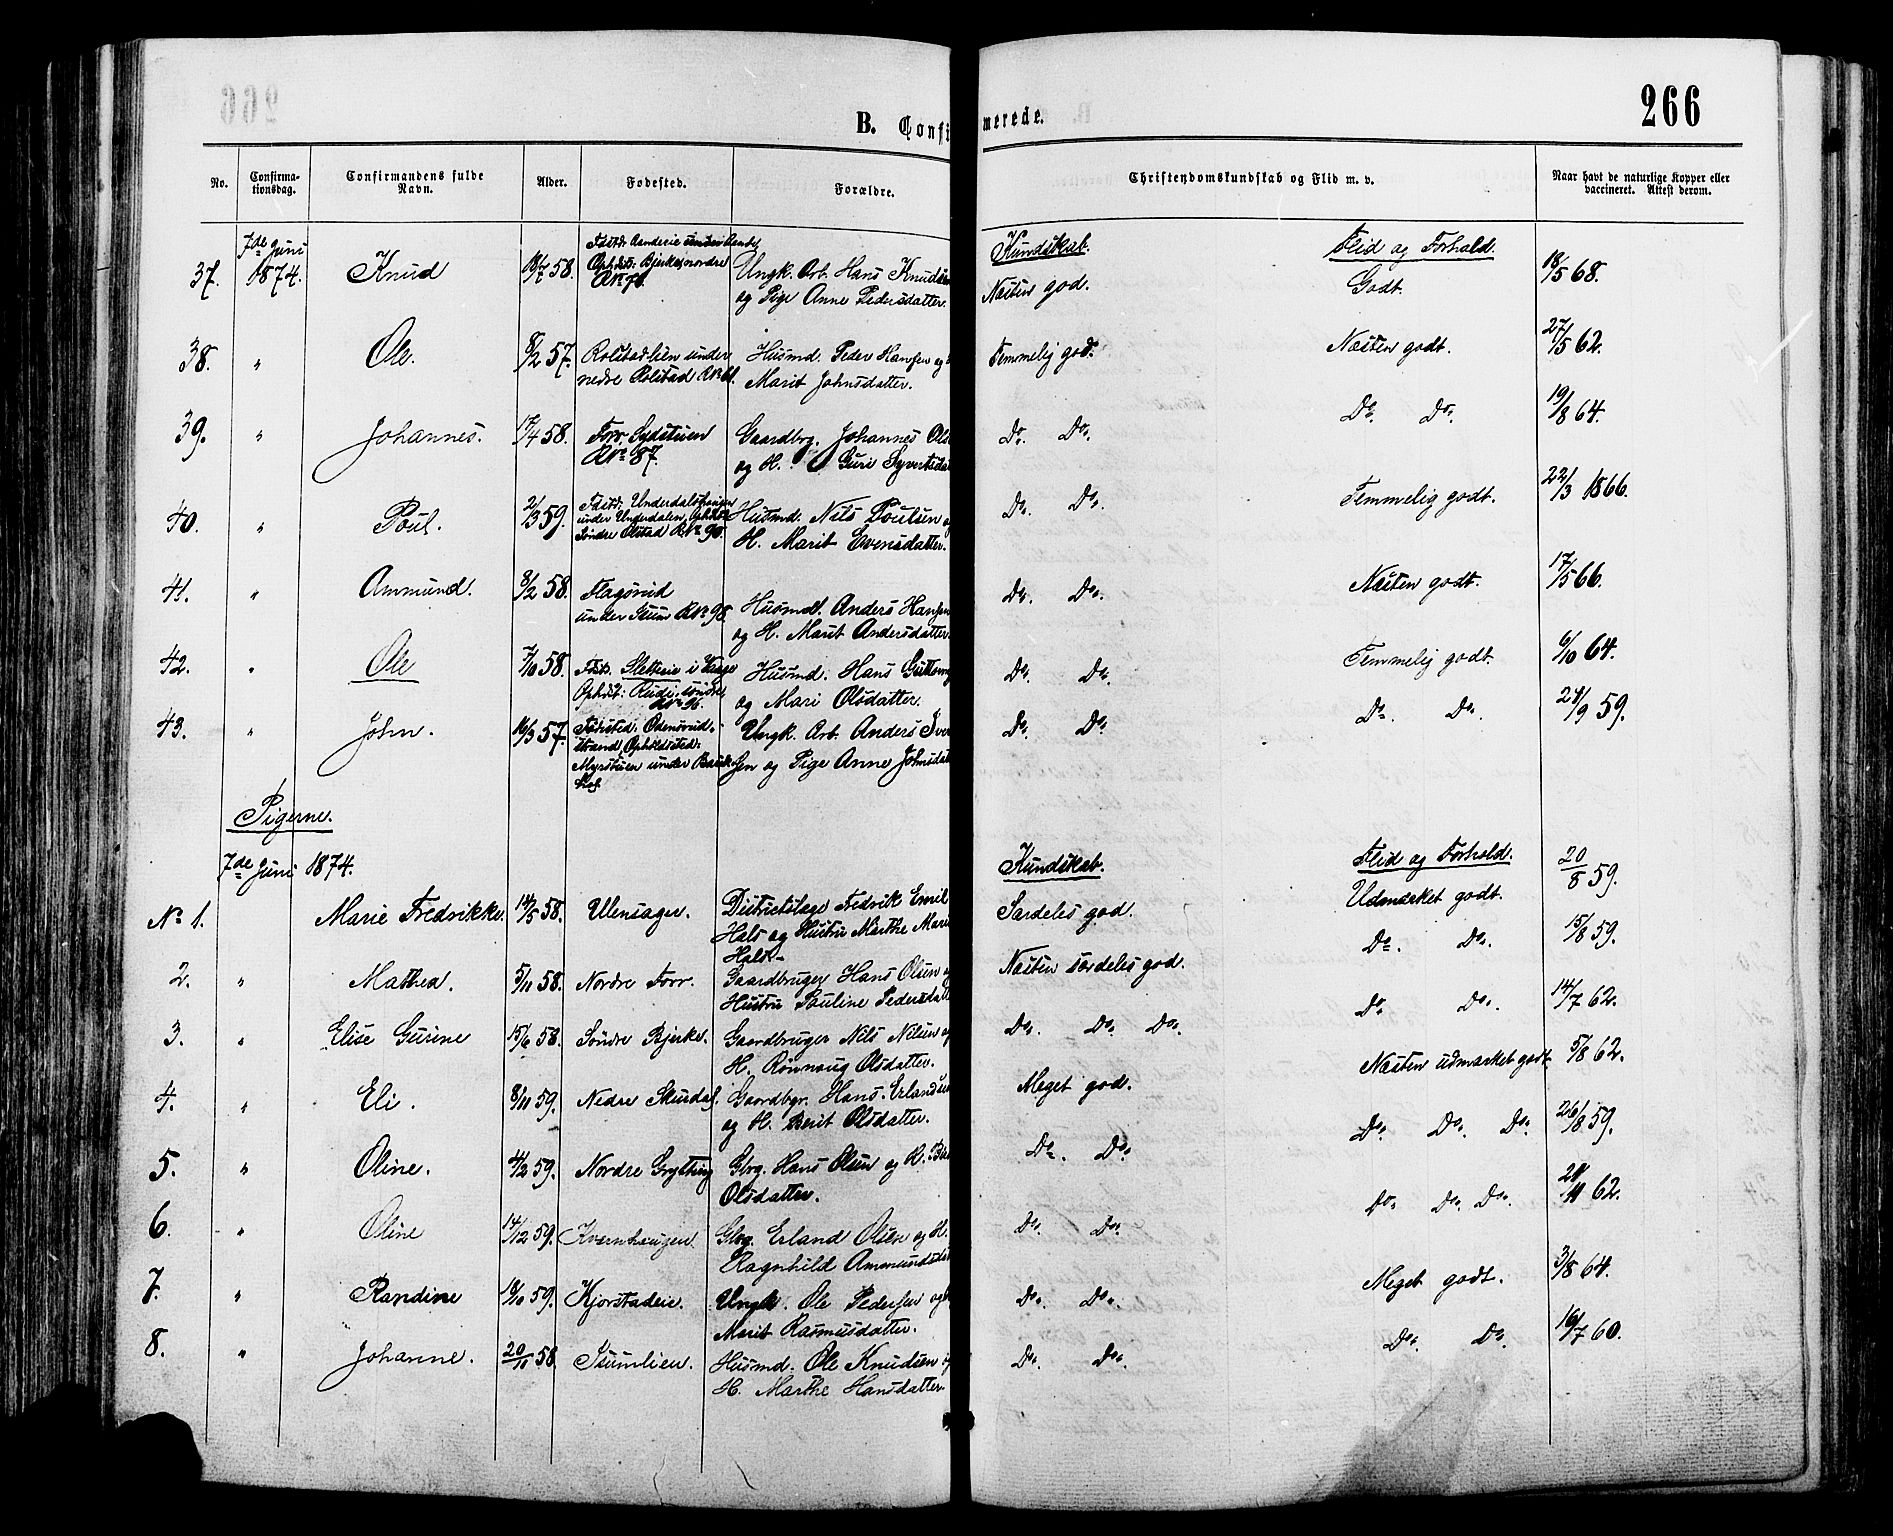 266
B. Confirmerede.
No. Confirmationsdag. Confirmandens fulde Navn. Alder. Fødested. Forældre. Christendomskundskab og Flid m. v. Naar havt de naturlige Kopper eller vaccineret. Attest derom.
7de Juni Kundskab. Flid og Forhold.
37. 1874. Knud 58. Ungk. Arb. Hans Knudsen Næsten god. Godt. 18/5 68.
No 70. og Pige Anne Pedersdatter.
38. " Ole. 8/2 57. Rolstadlien under Husmd. Peder Hansen og Temmelig god. Næsten godt. 27/5 62.
nedre Rolstad No 61. Marit Johnsdatter.
39. " Johannes. 17/4 58. Forr Sydstuen Gaardbrg. Johannes Ols Do. Do. Do. Do. 19/8 64.
No 87. og H. Guri Syvertsdat
40. " Poul. 2/3 59. Fdstd: Underdalshaugen Husmd. Nils Poulsen og Do. Do. Temmelig godt. 22/3 1866.
under Underdalen, Opholdst: H. Marit Evensdatter.
Søndre Olstad No 90.
41. " Ammund. 8/2 58. Flagsrud Husmd. Anders Hansen Do. Do. Næsten godt. 17/5 66.
under Isum No 98. og H. Marit Andersdatter.
42. " Ole 7/10 58. Fdst. Sletteie i Vaage Husmd. Hans Guttorms Do. Do. Temmelig godt. 6/10 64.
Opholdst: Rudi søndre og Mari Olsdatter.
No 96.
43. " John. 16/3 57. Fødested: Odensrud- Ungk. Arb. Anders Iver Do. Do. Do. Do. 59.
strand, Opholdsted: sen og Pige Anne Johnsdat
Myrstuen under
Pigerne.
7de Juni 1874. Kundskab. Flid og Forhold. 20/8 59.
No 1. Marie Fredrikke. 14/5 58. Ulensager. Districtslæge Fredrik Emil Særdeles god. Udmærket godt.
Hals og Hustru Marthe Marie
Hals
2. " Mathea. 5/11 58. Nordre Forr. Gaardbruger Hans Olsen og Næsten særdeles god. Do. Do. 15/8 59.
Hustru Pauline Pedersdatte
3. " Elise Gurine 15/6 58. Søndre Bjerke. Gaardbruger Nils Nilsen og Do. Do. Do. Do. Do. 14/7 62.
H. Rønnaug Olsdatter.
4. " Eli. 8/11 59. Nedre Skurdal. Gaardbgr. Hans Erlandsen Meget god. Næsten udmærket godt. 5/8 62.
og H. Berit Olsdatter.
5. " Oline. 4/2 59. Nordre Grytting Gbrg. Hans Olsen og H. Do. Do. Do. Do. Do. 26/8 59.
Olsdatter.
6. " Oline 14/12 59. Kvernhaugen. Gbrg. Erland Olsen og H. Do. Do. Do. Do. Do. 62.
Ragnhild Ammundsdat
7. " Randine 59. Kjorstadeie. Ungk. Ole Pedersen og Do. Do. Meget godt. 3/8 64.
Marit Rasmusdatter.
8. " Johanne. 20/11 58. Isumlien. Husmd. Ole Knudsen og Do. Do. Do. Do. 16/7 60.
H. Marthe Hansdatter